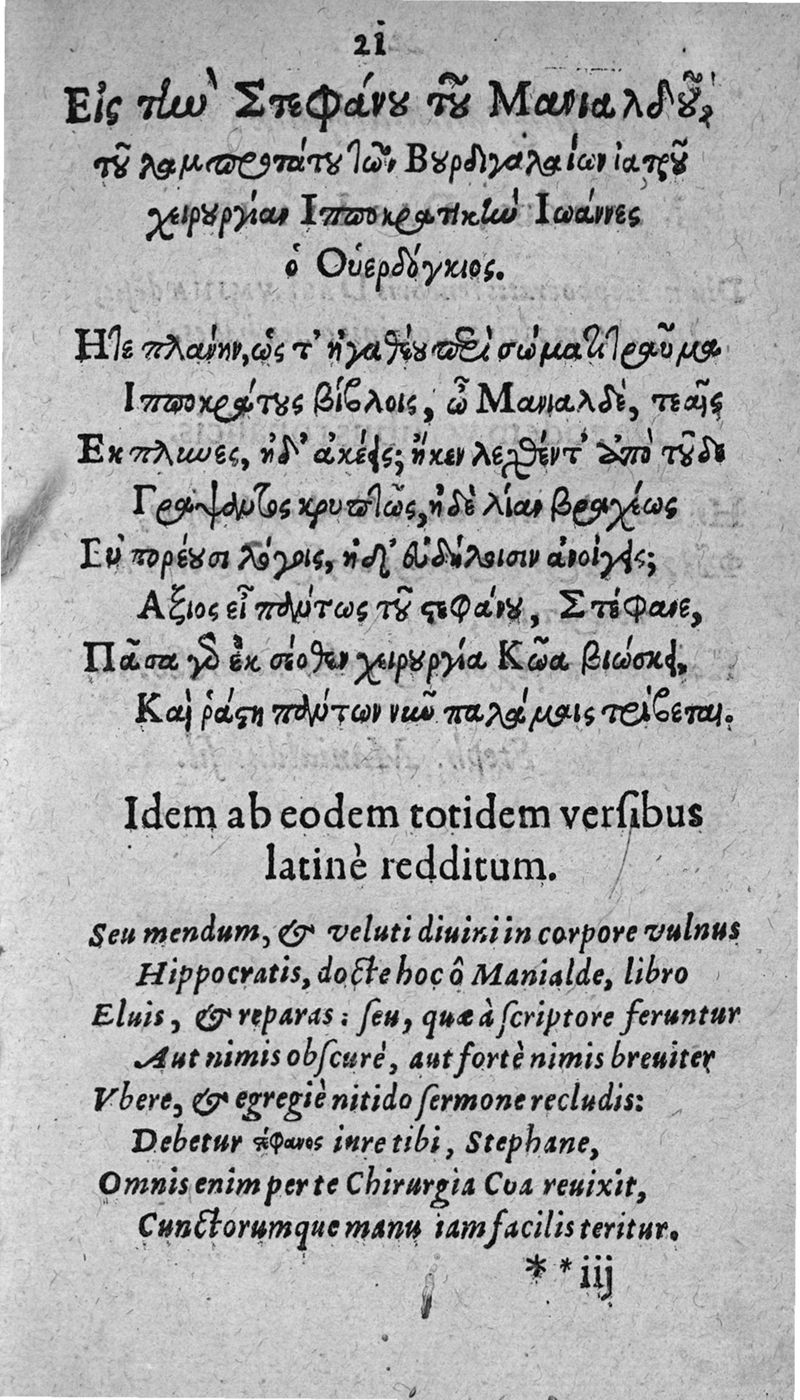 21
Εἰς τὴν Στεφάνου τοῦ Μανιαλδοῦ,
τοῦ λαμπροτάτου τῶν Βουρδιγαλαίων ἰατροῦ
χειρουργίαν Ιπποκρατικὴν Ιωάννες
ὁ Οὐερδούγκιος.
Ητε πλάνην, ὡς τ' ἠγαθέου περὶ σώματι τραῦμα
Ιπποκράτους βίβλοις, ὦ Μανιαλδὲ, τεαῖς
Εκπλυνες, ἠδ' ἀκέεις; ἤκεν λεχθέντ' ἀπὸ τοῦδε
Γράψαντος κρυπτῶς, ἠδὲ λίαν βραχέως
Εὐπορέουσι λόγοις, ἠδ' εὐδήλοισιν ἀνοίγεις;
Αξιος εἶ πάντως τοῦ στεφάνου, Στέφανε,
Πᾶσα γὰρ ἐκ σέοθεν χειρουργία Κῶα βιώσκει,
Καὶ ῥάστη πάντων νῦν παλάμαις τρίβεται.
Idem ab eodem totidem versibus
latinè redditum.
Seu mendum, & veluti diuini in corpore vulnus
Hippocratis, docte hoc ô Manialde, libro
Eluis, & reparas: seu, quæ à scriptore feruntur
Aut nimis obscurè, aut fortè nimis breuiter
Vbere, & egregiè nitido sermone recludis:
Debetur στέφανος iure tibi, Stephane,
Omnis enim per te Chirurgia Coa reuixit,
Cunctorumque manu iam facilis teritur.
* * iij